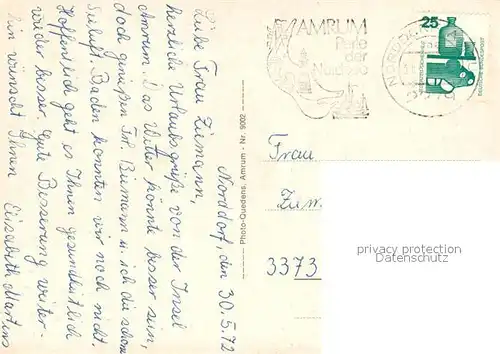 Norddorf, den 30.5.72
Liebe Frau Ziemann,
herzliche Urlaubsgrüße von der Insel
Amrum. Das Wetter könnte besser sein,
doch genießen Frl. Biemann u. ich die schöne
Seeluft. Baden konnten wir noch nicht.
Hoffentlich geht es Ihnen gesundheitlich
wieder besser. Gute Besserung weiter-
hin wünscht Ihnen Elisabeth Martens
Photo-Quedens, Amrum - Nr. 9002
AMRUM
Perle
der
Nordsee
25
Frau
3373
privacy protection
Datenschutz